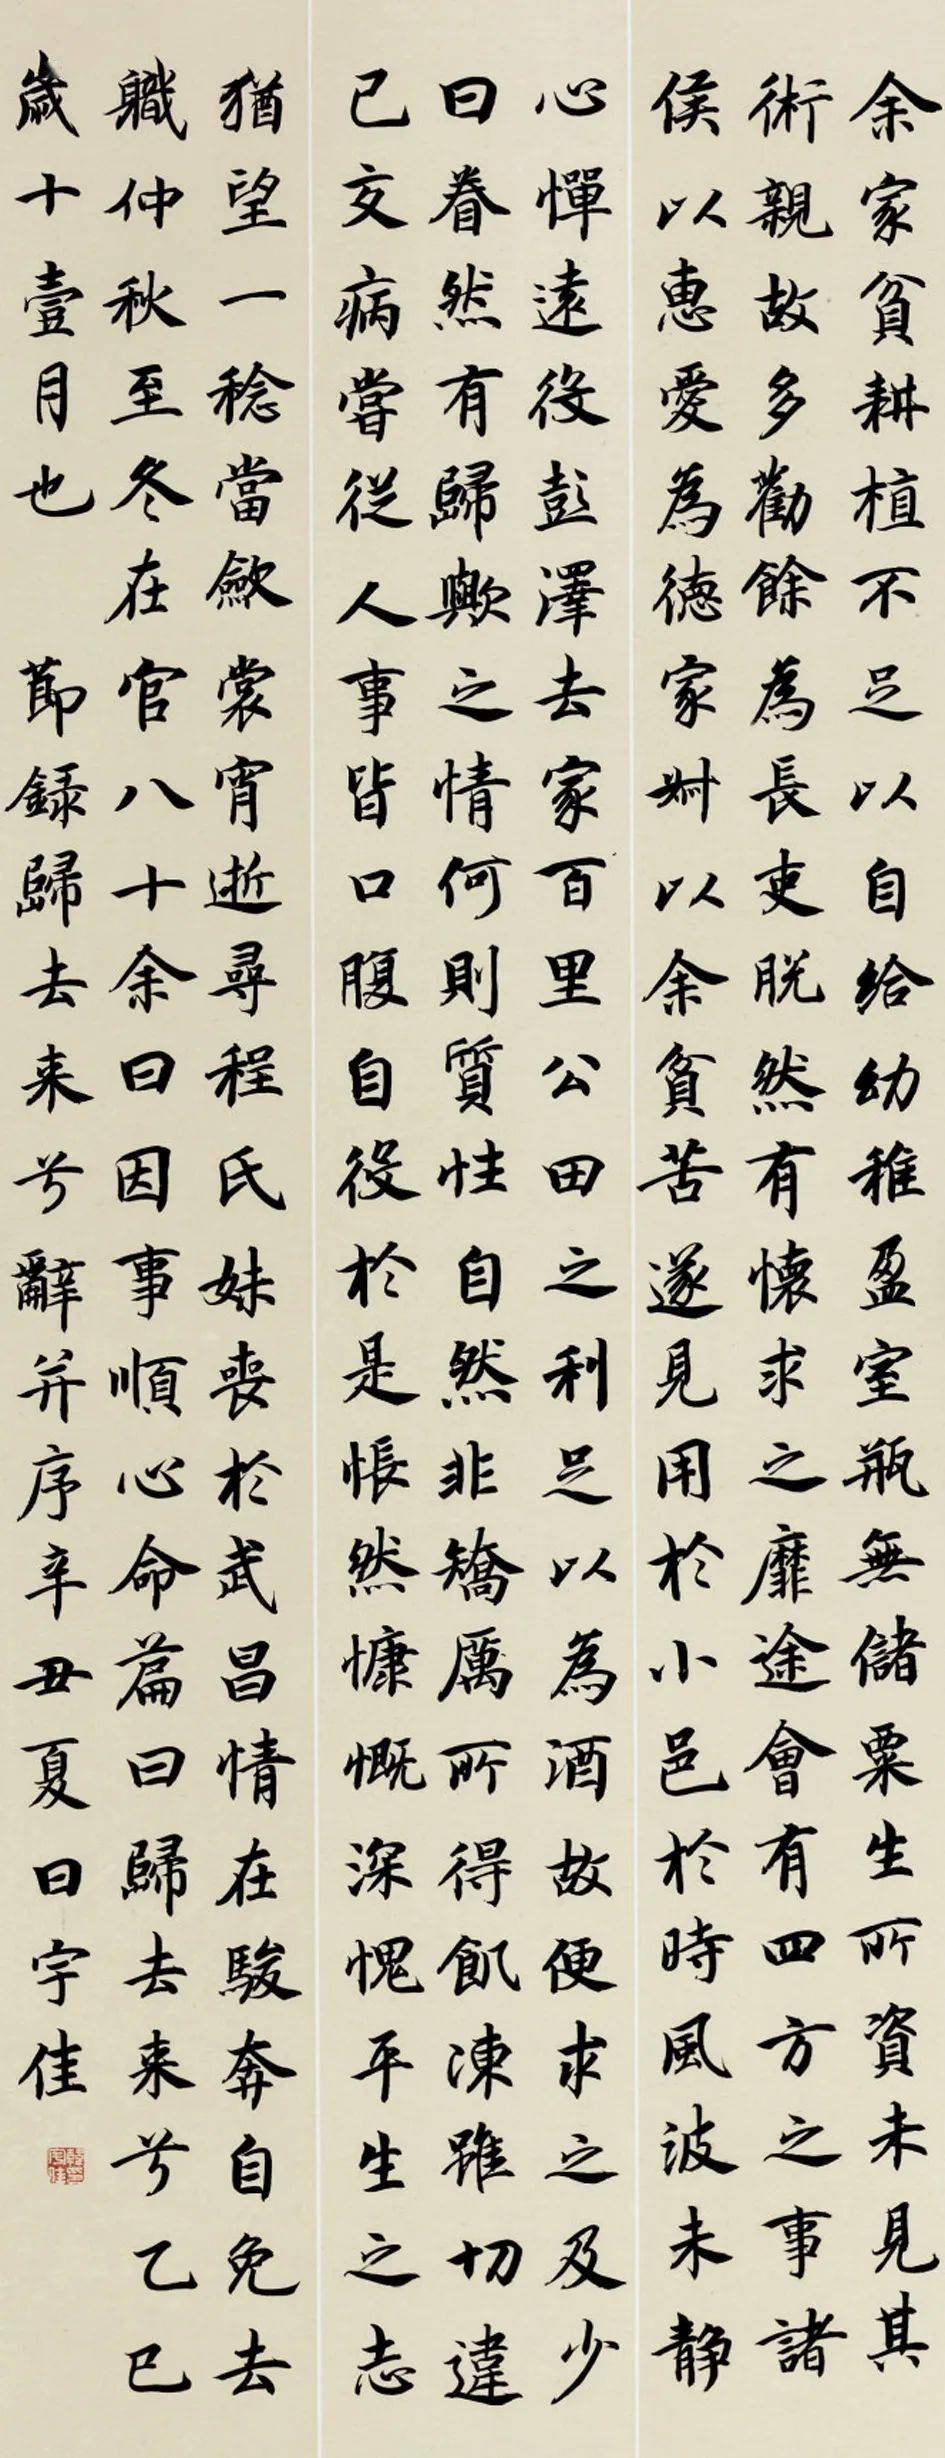 余家貧耕植不足以自給幼稚盈室瓶無儲粟生所資未見其
術親故多勸餘為長吏脱然有懐求之靡途會有四方之事諸
侯以恵愛為徳家叔以余貧苦遂見用於小邑於時風波未静
心憚遠役彭澤去家百里公田之利足以為酒故便求之及少
日眷然有歸歟之情何則質性自然非矯厲所得飢凍雖切違
已交病嘗從人事皆口腹自役於是悵然慷慨深愧平生之志
猶望一稔當斂裳宵逝尋程氏妹喪於武昌情在駿奔自免去
職仲秋至冬在官八十余日因事順心命篇曰歸去来兮乙巳
歲十壹月也 節録歸去来兮辭并序辛丑夏日宇佳